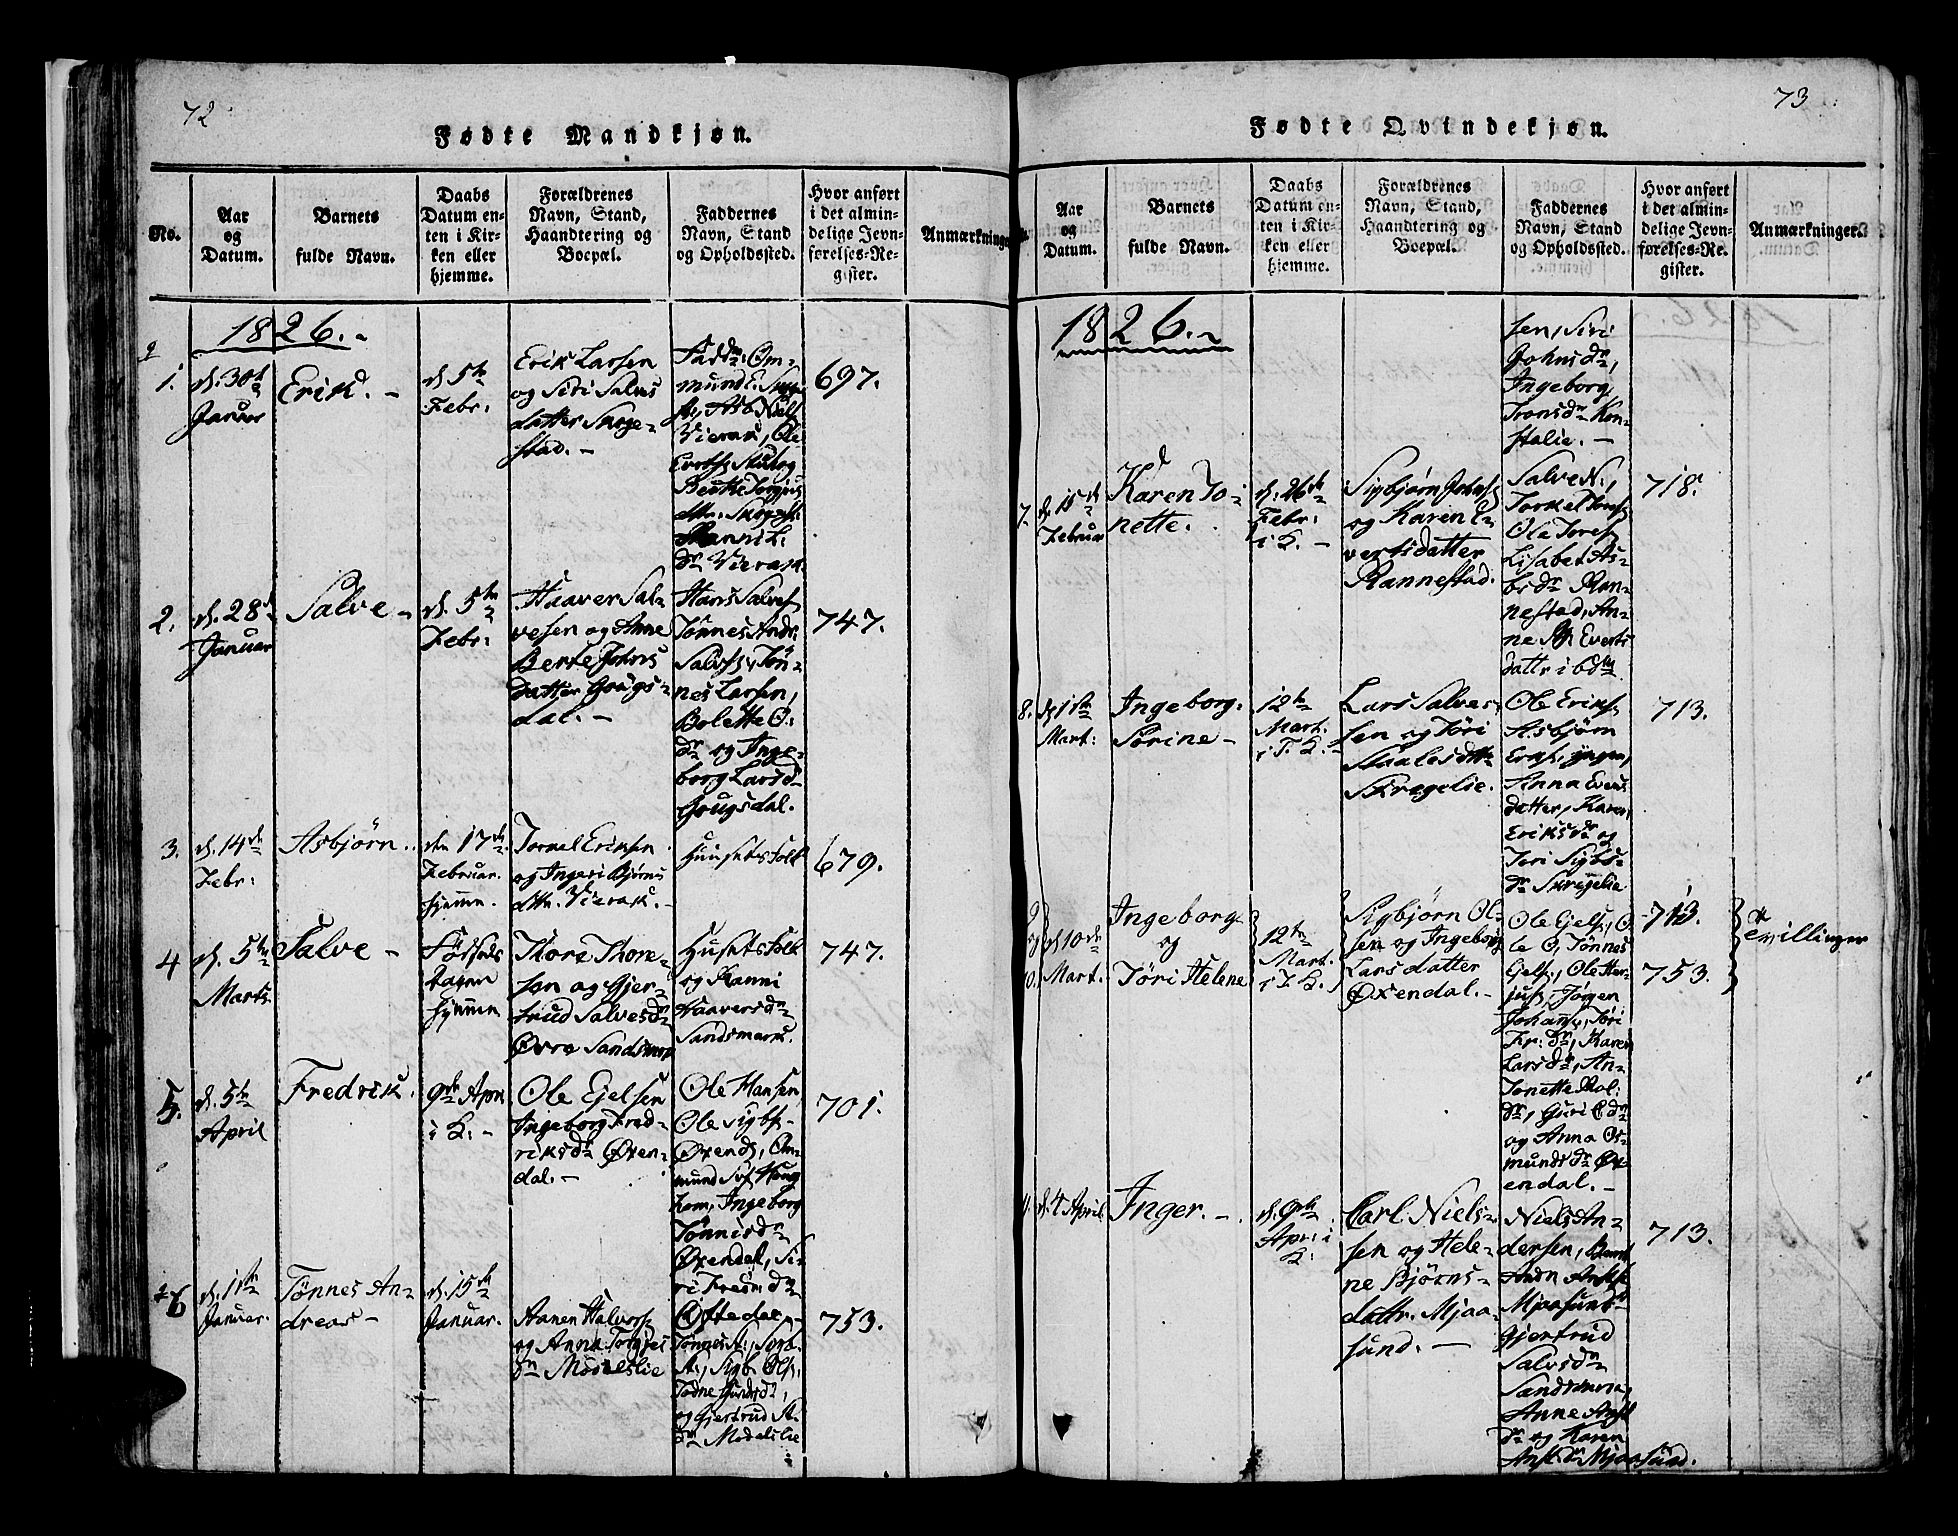 72
Fødte Mandkjøn.
No.
Aar
og
Datum.
Barnets
fulde Navn.
Daabs
Datum en-
ten i Kir-
ken eller
hjemme.
Forældrenes
Navn, Stand,
Haandtering og
Boepæl.
Faddernes
Navn, Stand
og Opholdssted.
Hvor anført
i det almin-
delige Jevn-
førelses-Re-
gister.
Anmærkninger
1826.
1.
d. 30te
Januar
Erik.
d 5te
Febr:
Erik Larsen
og Siri Salves
datter Skege-
stad.
Fadd: Om-
mund E.
Asb Niels
Vierak, Ole
Berthe Torgius
dttr.
dr Vierak.
697.
2.
d. 28
Januar
Salve
d. 5te
Febr:
Haaver Sal-
vesen og Anne
Berte Johns
datter Gougs-
dal.
Hans Salves
Tønnes Andr:
Salves, Tøn-
nes Larsen,
Bolette O:
dr og Inge-
borg Larsd
Gougsdal.
747.
3.
d. 14de
Febr:
Asbjørn.
den 17de
Februar
hjemme.
Torkel Eriksen
og Ingeri Bjørns
dttr. Vierak.
Huusets Folk
679.
4
d. 5te
Marts
Salve
Fødsels
dagen
hjemme
Thore Thore-
sen og Gjer-
trud Salvesd
Øvre Sandsmark
Husets Folk
og Ranni
Haaversd
Sandsmark.
747.
5.
d. 5te
April
Fredrik.
9de Apr
i K.
Ole Ejelsen
Ingeborg Fred-
riksd Øxen-
dal.
Ole Hansen
Ole Sigbs
Øxend, Om-
mund
kom, Ingeborg
Tønnisd
Øxendal, Si-
ri
701.
6
d. 1te
Januar.
Tønnes An-
dreas
d. 15de
Januar.
Aanen Halvors
og Anna Torgjes
dr Modeslie
Tønnes A:, Sigb.
A:, Sigb. Ols,
Todne
og Gjertrud A:
dr Modeslie
753.
73
Fødte Qvindekjøn.
Aar
og
Datum.
Barnets
fulde Navn.
Daabs
Datum en-
ten i Kir-
ken eller
hjemme.
Forældrenes
Navn, Stand,
Haandtering og
Boepæl.
Faddernes
Navn, Stand
og Opholdssted.
Hvor anført
i det almin-
delige Jevn-
førelses-Re-
gister.
Anmærkninger.
1826.
sen, Siri
Johnsdr,
Ingeborg
Tronsdr Kon-
stalie.
7.
d. 15de
Februar
Karen To-
nette.
d. 26de
Febr:
i K.
Sigbjørn Johns
og Karen E-
vertsdatter
Rannestad.
Salve N.,
Torkel Tores
Ole Tores
Lisabet As-
bsdr Ran-
nestad, An-
ne Everts
dattr i
718.
8.
d. 1te
Mart:
Ingeborg
Sørine
12te
Mart.
i F. K.
Lars Salves-
sen og Tøri
Staalesdttr
Skregelie.
Ole Eriks
Asbjørn
Anna Evens
datter, Karen
Eriksdr og
Teri Sigbs-
dr Skregelie
713.
9
og
10.
d 10de
Mart.
Ingeborg
og
Tøri Helene
12te
Mart.
i F. K.
Sigbjørn Ol-
sen og Ingeborg
Larsdatter
Øxendal.
Ole Ejels, O-
le O, Tønnes
Ejels, Ole Ter-
jus, Jørgen
Johans, Tøri
Fr: dr, Karen
Larsdr, An-
Tonette Rol:
dr, Guri O dr
og Anna Os-
munds dr Øx-
endal.
713.
753.
Tvillinger
11.
d. 4 April
Inger.
d. 9de
Apr: i
K:
Carl Niels-
sen og Hele-
ne Bjørns-
dattr. Mjaa-
sund.
Niels An-
dersen,
Mjaasund
Gjertrud
Salvsdr
Sandsmark,
Anne
dr og Karen
dr Mjaasund.
713.